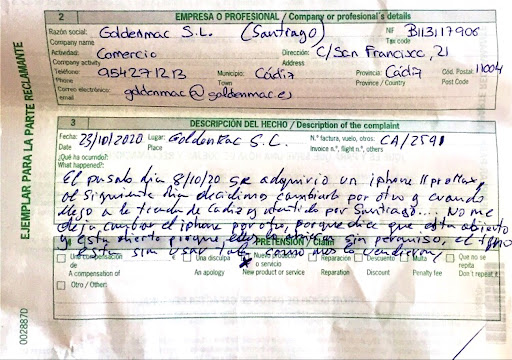 2 EMPRESA O PROFESIONAL / Company or profesional's details
Razón social: Goldenmac S.L. (Santiago) NIF B113117906
Company name Tax code
Actividad: Comercio Dirección: C/San Francisco, 21
Company activity Address
Teléfono: 954271213 Municipio: Cádiz Provincia: Cádiz Cód. Postal: 11004
Phone Town Province / Country Post Code
Correo electrónico: goldenmac@goldenmac.es
email
3 DESCRIPCIÓN DEL HECHO / Description of the complaint
Fecha: 23/10/2020 Lugar: Goldenmac S.L. N.º factura, vuelo, otros: CA/2591
Date Place Invoice n.º, flight n.º, others
¿Qué ha ocurrido?
What happened?
El pasado día 8/10/20 se adquirió un iphone 11 pro Max,
al siguiente día decidimos cambiarlo por otro y cuando
llego a la tienda de Cádiz y atentido por Santiago... No me
deja cambiar el iphone por otro, porque dice que esta abierto
y esta abierto porque sin permiso, el
sin usar
PRETENSIÓN / Claim
Una compensación Una disculpa Nuevo producto o servicio Reparación Descuento Multa Que no se repita
A compensation of An apology New product or service Reparation Discount Penalty fee Don't repeat it
Otro / Other:
EJEMPLAR PARA LA PARTE RECLAMANTE
002887D